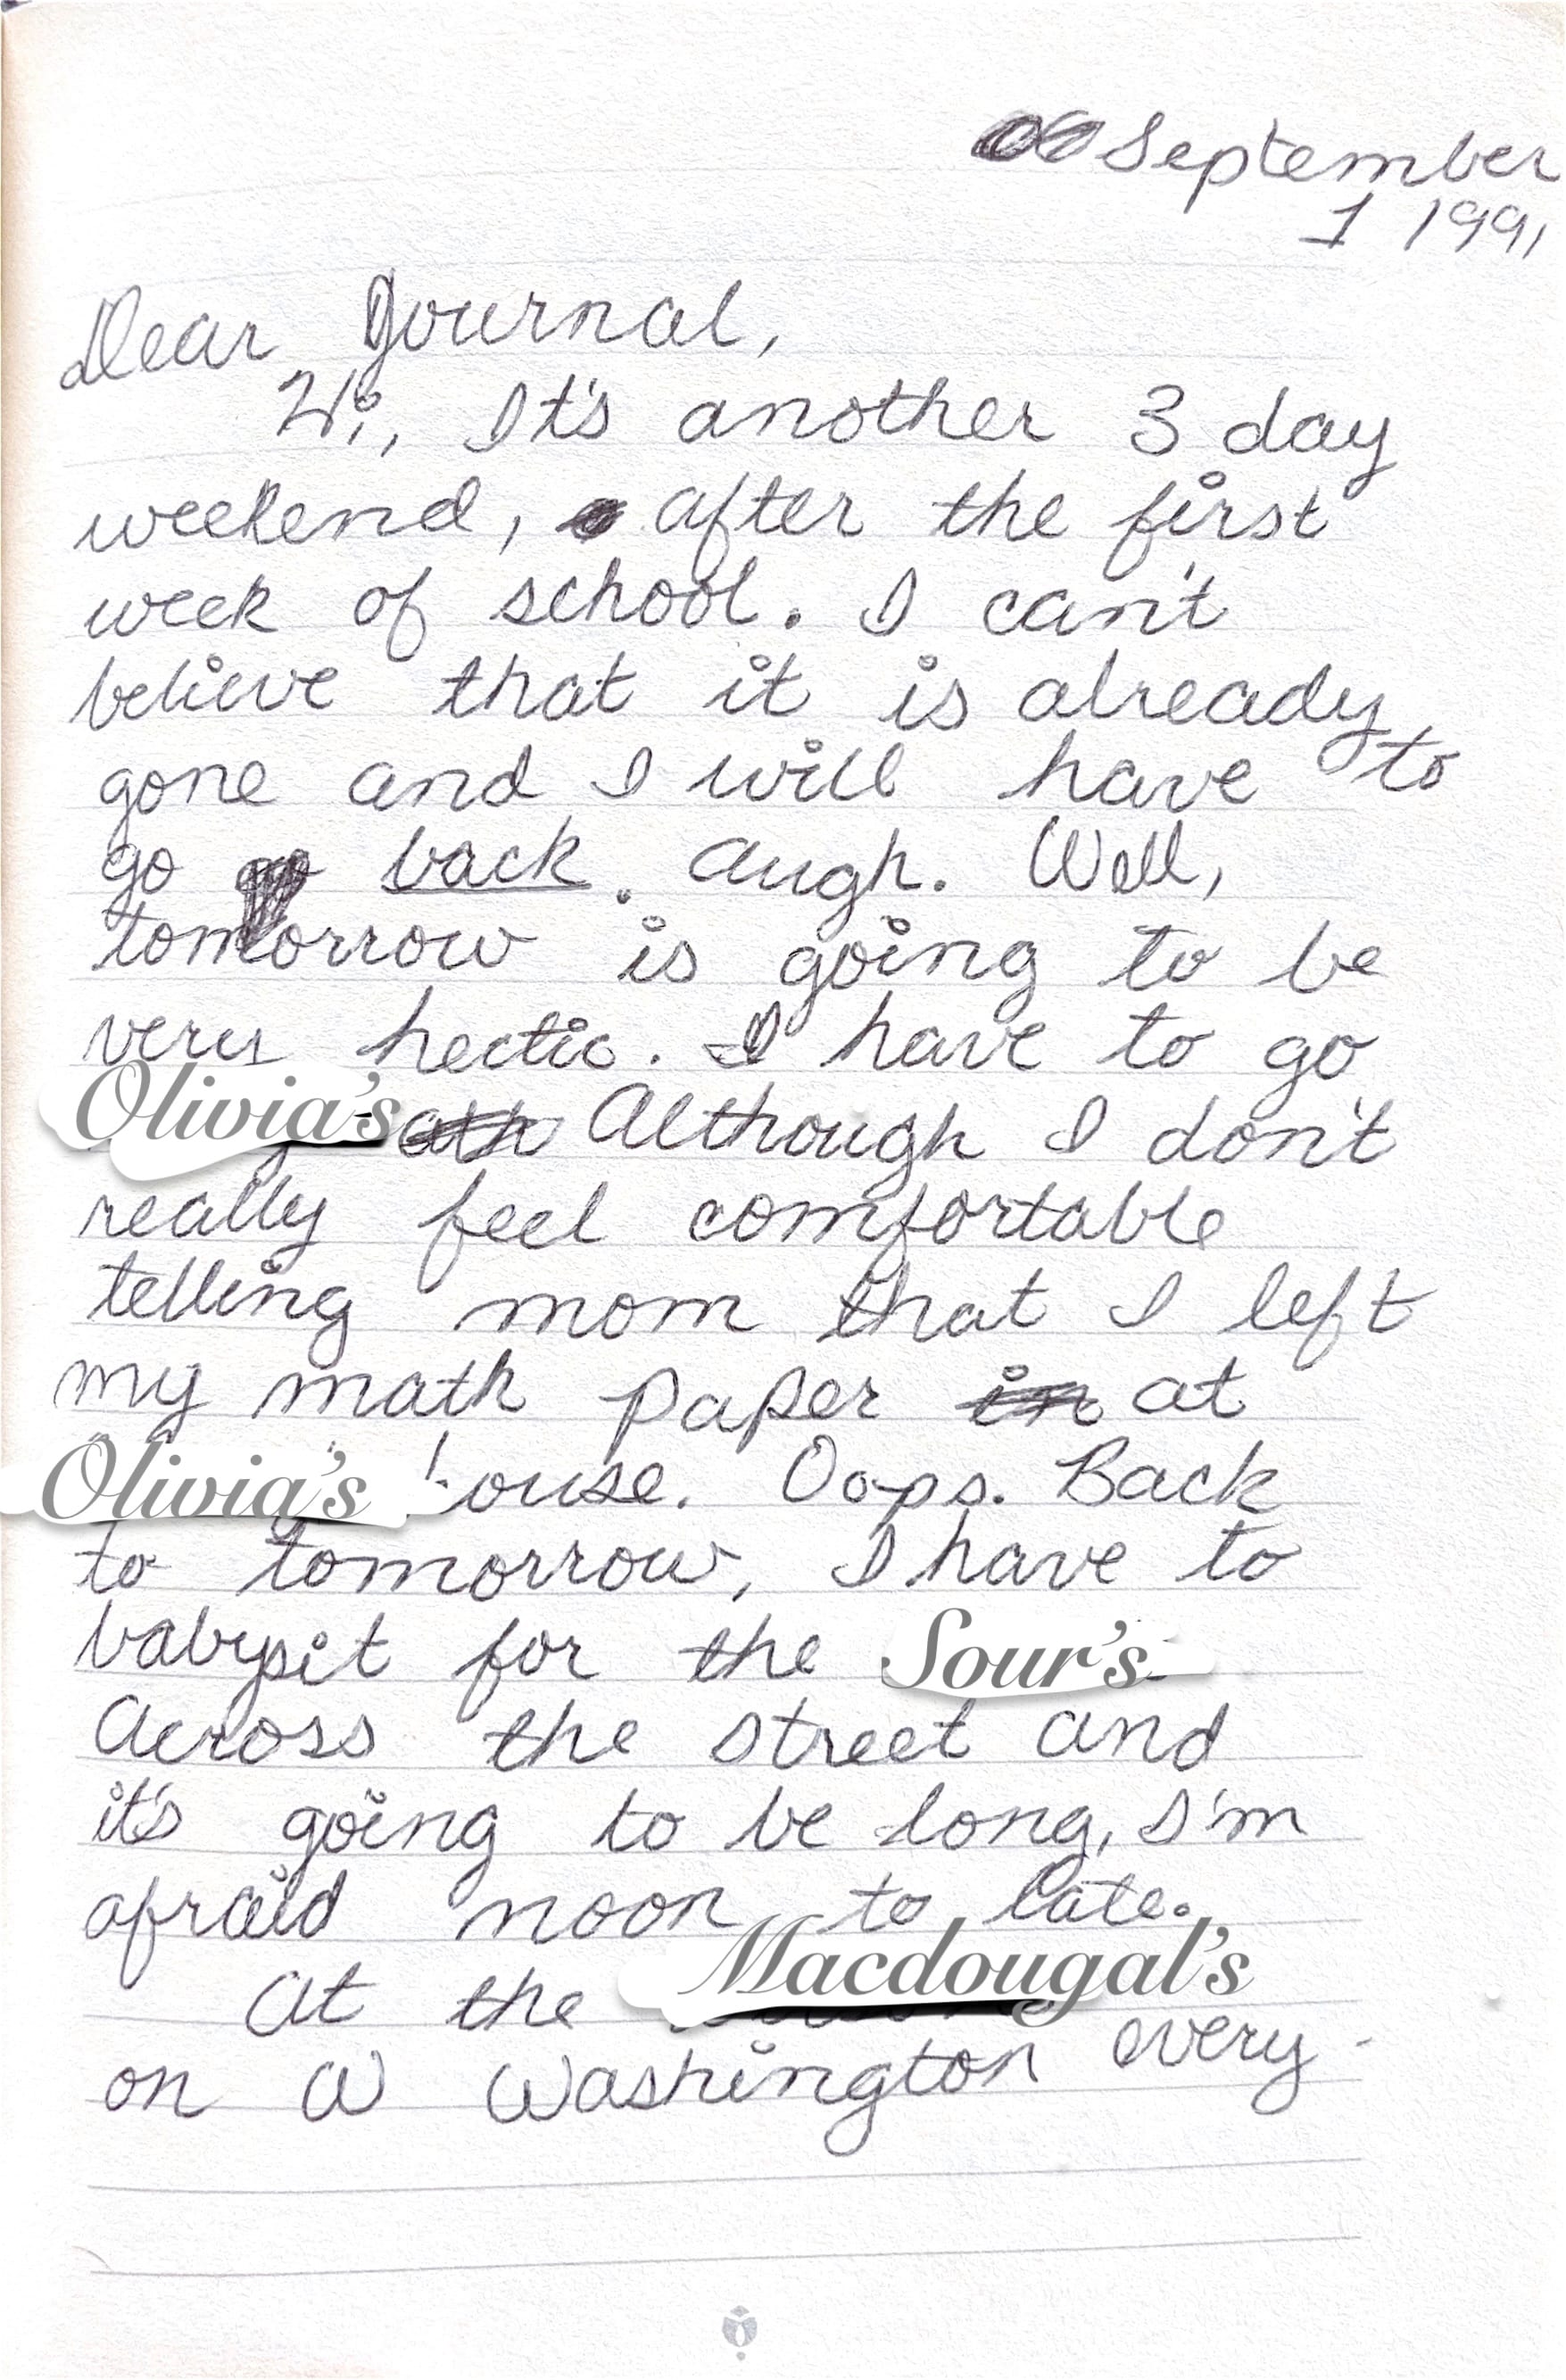 September
1 1991
Dear Journal,
Hi, It's another 3 day
weekend, after the first
week of school. I can't
believe that it is already
gone and I will have to
go back. Augh. Well,
tomorrow is going to be
very hectic. I have to go
Olivia's Although I don't
really feel comfortable
telling mom that I left
my math paper in at
Olivia's house. Oops. Back
to tomorrow, I have to
babysit for the Sour's
Across the street and
it's going to be long, I'm
afraid noon to late.
At the Macdougal's
on W Washington every